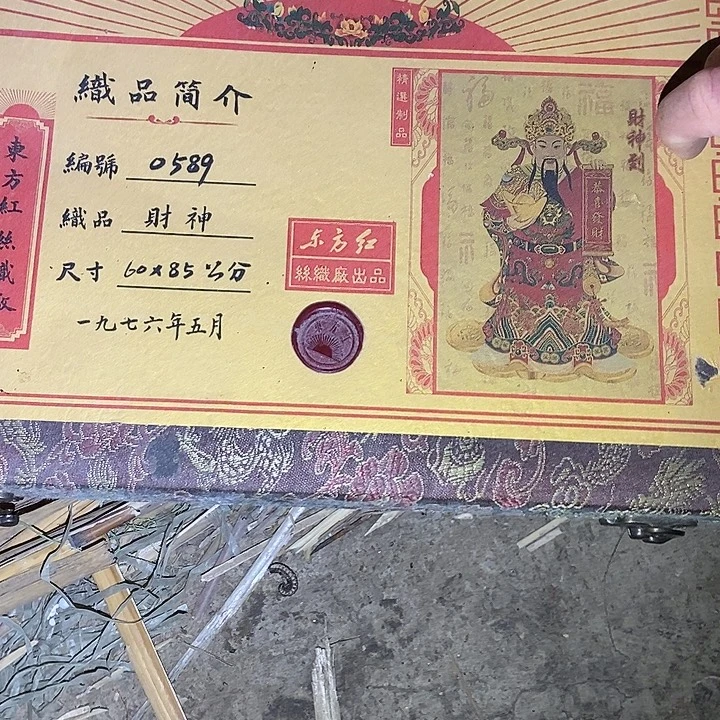 織品简介
編號 0589
織品 財神
尺寸 60×85公分
一九七六年五月
東方紅絲織
东方红
絲織廠出品
精選制品
財神到
恭喜發財
福